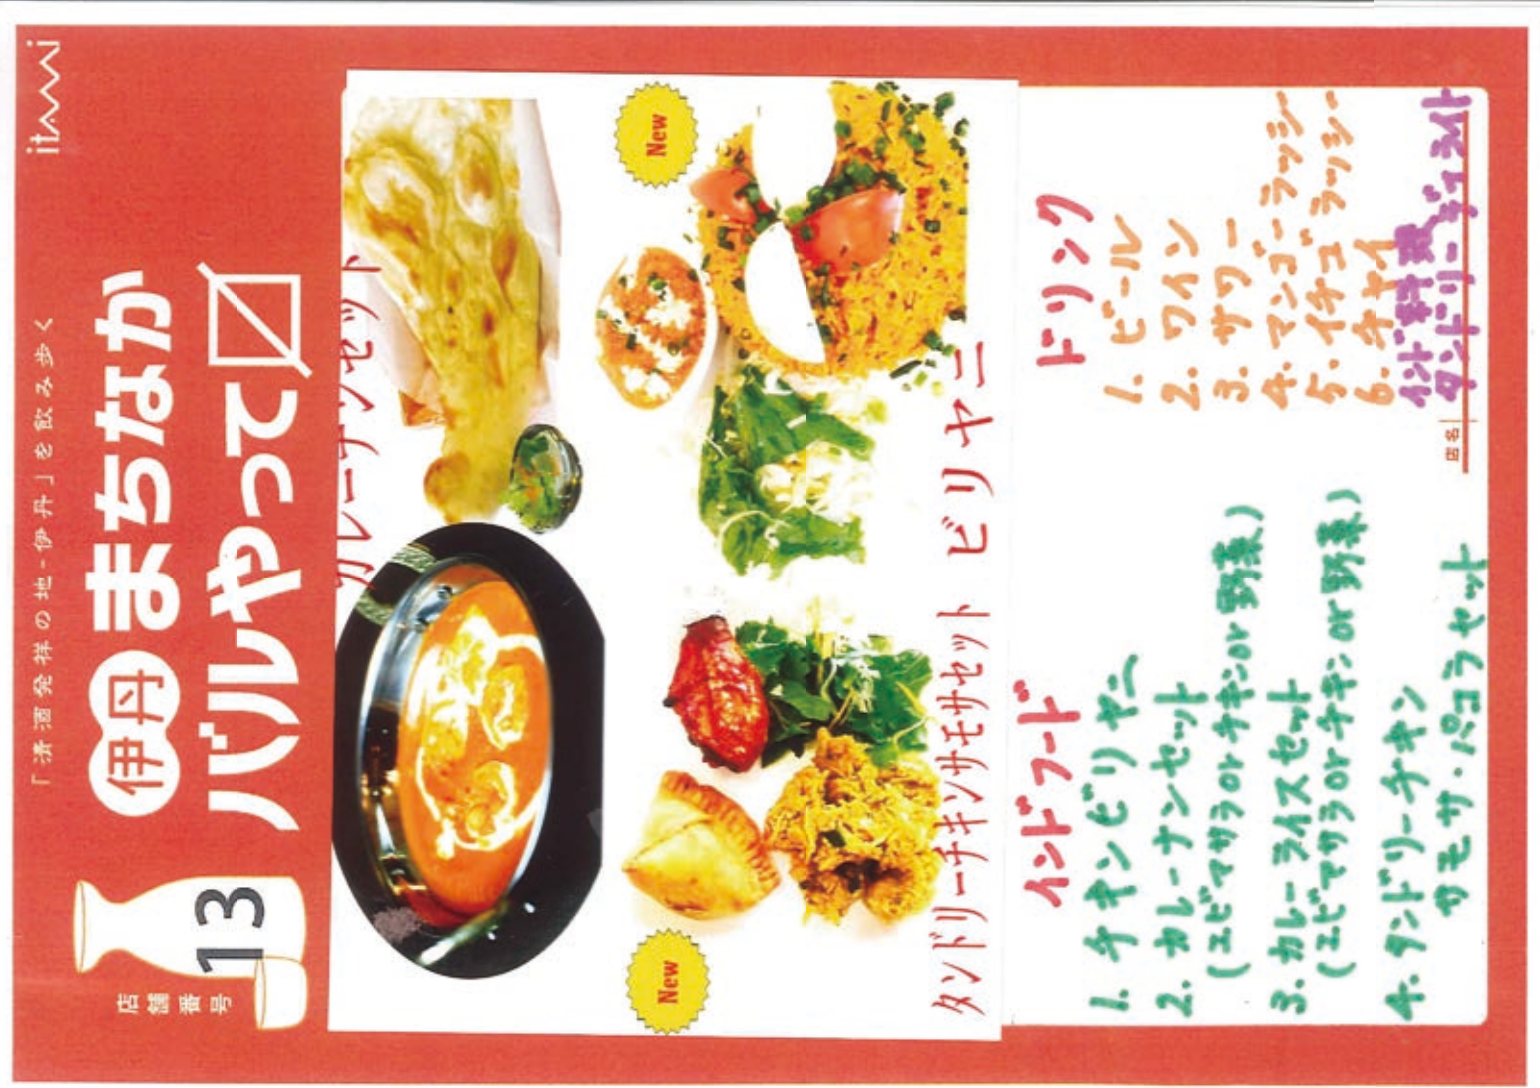 「清酒発祥の地-伊丹」を飲み歩く
itami
伊丹 まちなか
バルやって〼
店舗番号
13
カレーナンセット
New
New
タンドリーチキンサモサセット ビリヤニ
インドフード
1. チキンビリヤニ
2. カレーナンセット
(エビマサラorチキンor野菜)
3. カレーライスセット
(エビマサラorチキンor野菜)
4. タンドリーチキン
サモサ・パコラセット
ドリンク
1. ビール
2. ワイン
3. サワー
4. マンゴーラッシー
5. イチゴラッシー
6. チャイ
店名
インド料理ディライト
タンドリー